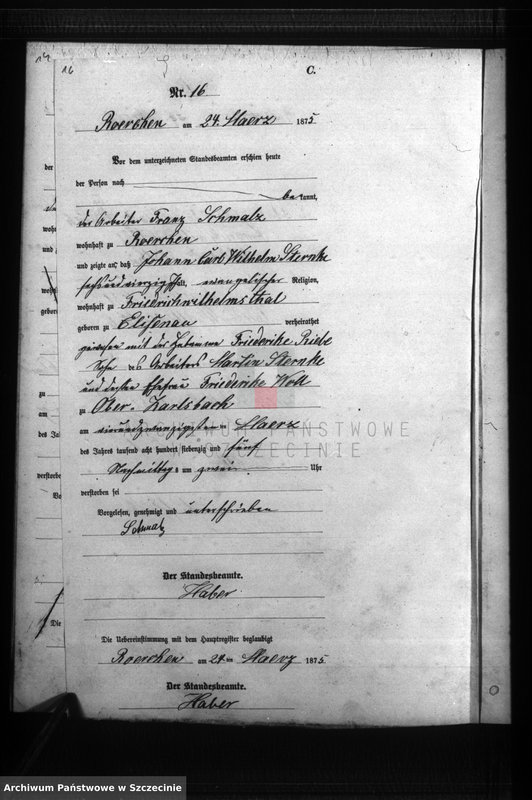 16
C.
Nr. 16
Roerchen am 24. Maerz 1875
Vor dem unterzeichneten Standesbeamten erschien heute
der Person nach
bekannt,
der Arbeiter Franz Schmalz
wohnhaft zu Roerchen
und zeigte an, daß Johann Carl Wilhelm Sternke
sechsundvierzig Jahr alt, evangelischer Religion,
wohnhaft zu Friedrichwilhelmsthal
geboren zu Elisenau verheirathet
gewesen mit der Friederike Riebe
Sohn des Arbeiters Martin Sternke
und dessen Ehefrau Friederike Woll
zu Ober-Karlsbach
am vierundzwanzigsten Maerz
des Jahres tausend acht hundert siebenzig und fünf
Nachmittags um zwei Uhr
verstorben sei
Vorgelesen, genehmigt und unterschrieben
Schmalz
Der Standesbeamte.
Haber
Die Uebereinstimmung mit dem Hauptregister beglaubigt
Roerchen am 24ten Maerz 1875
Der Standesbeamte.
Haber
Archiwum Państwowe w Szczecinie